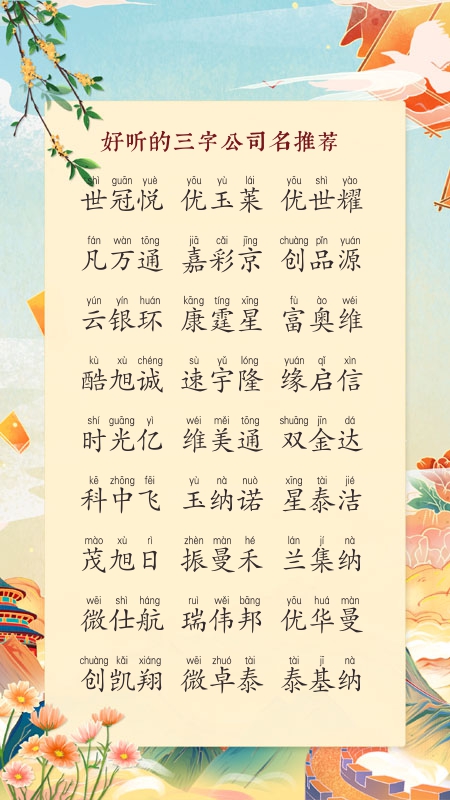 好听的三字公司名推荐
shì guān yuè yōu yù lái yōu shì yào
世冠悦 优玉莱 优世耀
fán wàn tōng jiā cǎi jīng chuàng pǐn yuán
凡万通 嘉彩京 创品源
yún yín huán kāng tíng xīng fù ào wéi
云银环 康霆星 富奥维
kù xù chéng sù yǔ lóng yuán qǐ xìn
酷旭诚 速宇隆 缘启信
shí guāng yì wéi měi tōng shuāng jīn dá
时光亿 维美通 双金达
kē zhōng fēi yù nà nuò xīng tài jié
科中飞 玉纳诺 星泰洁
mào xù rì zhèn màn hé lán jí nà
茂旭日 振曼禾 兰集纳
wēi shì háng ruì wěi bāng yōu huá màn
微仕航 瑞伟邦 优华曼
chuàng kǎi xiáng wēi zhuó tài tài jī nà
创凯翔 微卓泰 泰基纳